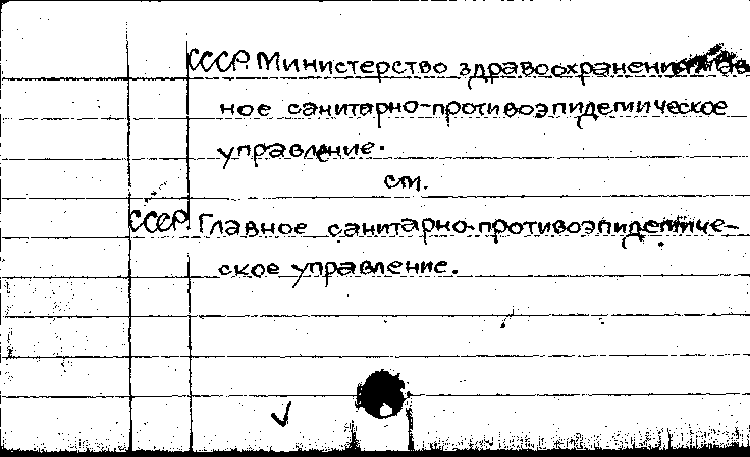 СССР. Министерство здравоохранения. Глав-
ное санитарно-противоэпидемическое
управление.
см.
СССР. Главное санитарно-противоэпидемиче-
ское управление.